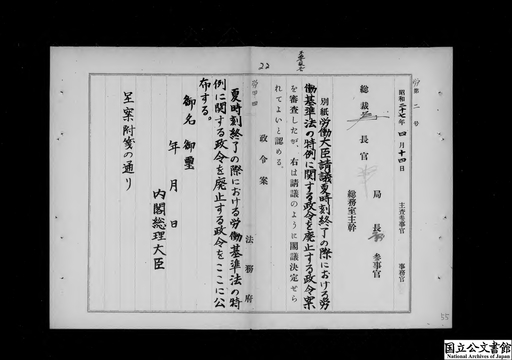 22
労第二号
昭和二十七年四月十四日
主査参事官
事務官
総裁
長官
局長
参事官
総務室主幹
別紙労働大臣請議夏時刻終了の際における労
働基準法の特例に関する政令を廃止する政令案
を審査したが、右は請議のように閣議決定せら
れてよいと認める。
政令案
法務府
夏時刻終了の際における労働基準法の特
例に関する政令を廃止する政令をここに公
布する。
御名御璽
年月日
内閣総理大臣
呈案附箋の通り
55
国立公文書館
National Archives of Japan